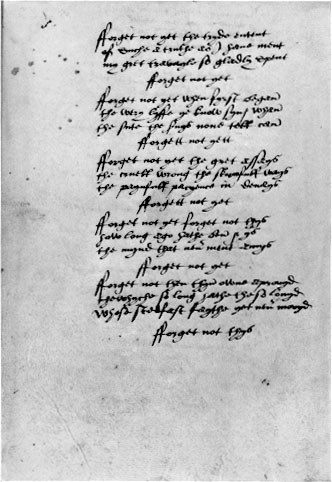 fforget not yet the tryde entent
of suche a truthe as I haue ment
my gret travayle so gladly spent
fforget not yet
fforget not yet when fyrst began
the wery lyffe ye know syns whan
the sute the servys none tell can
fforgett not yett
fforget not yet the gret assays
the cruell wrong the skornfull ways
the paynfull pacyence in denays
fforgett not yet
fforget not yet forget not thys
how long ago hathe ben & ys
the mynd that neuer ment amys
fforget not yet
fforget not then thyn owne aprovyd
the whyche so long hathe the so lovyd
whose stedfast faythe yet neuer movyd
fforget not thys